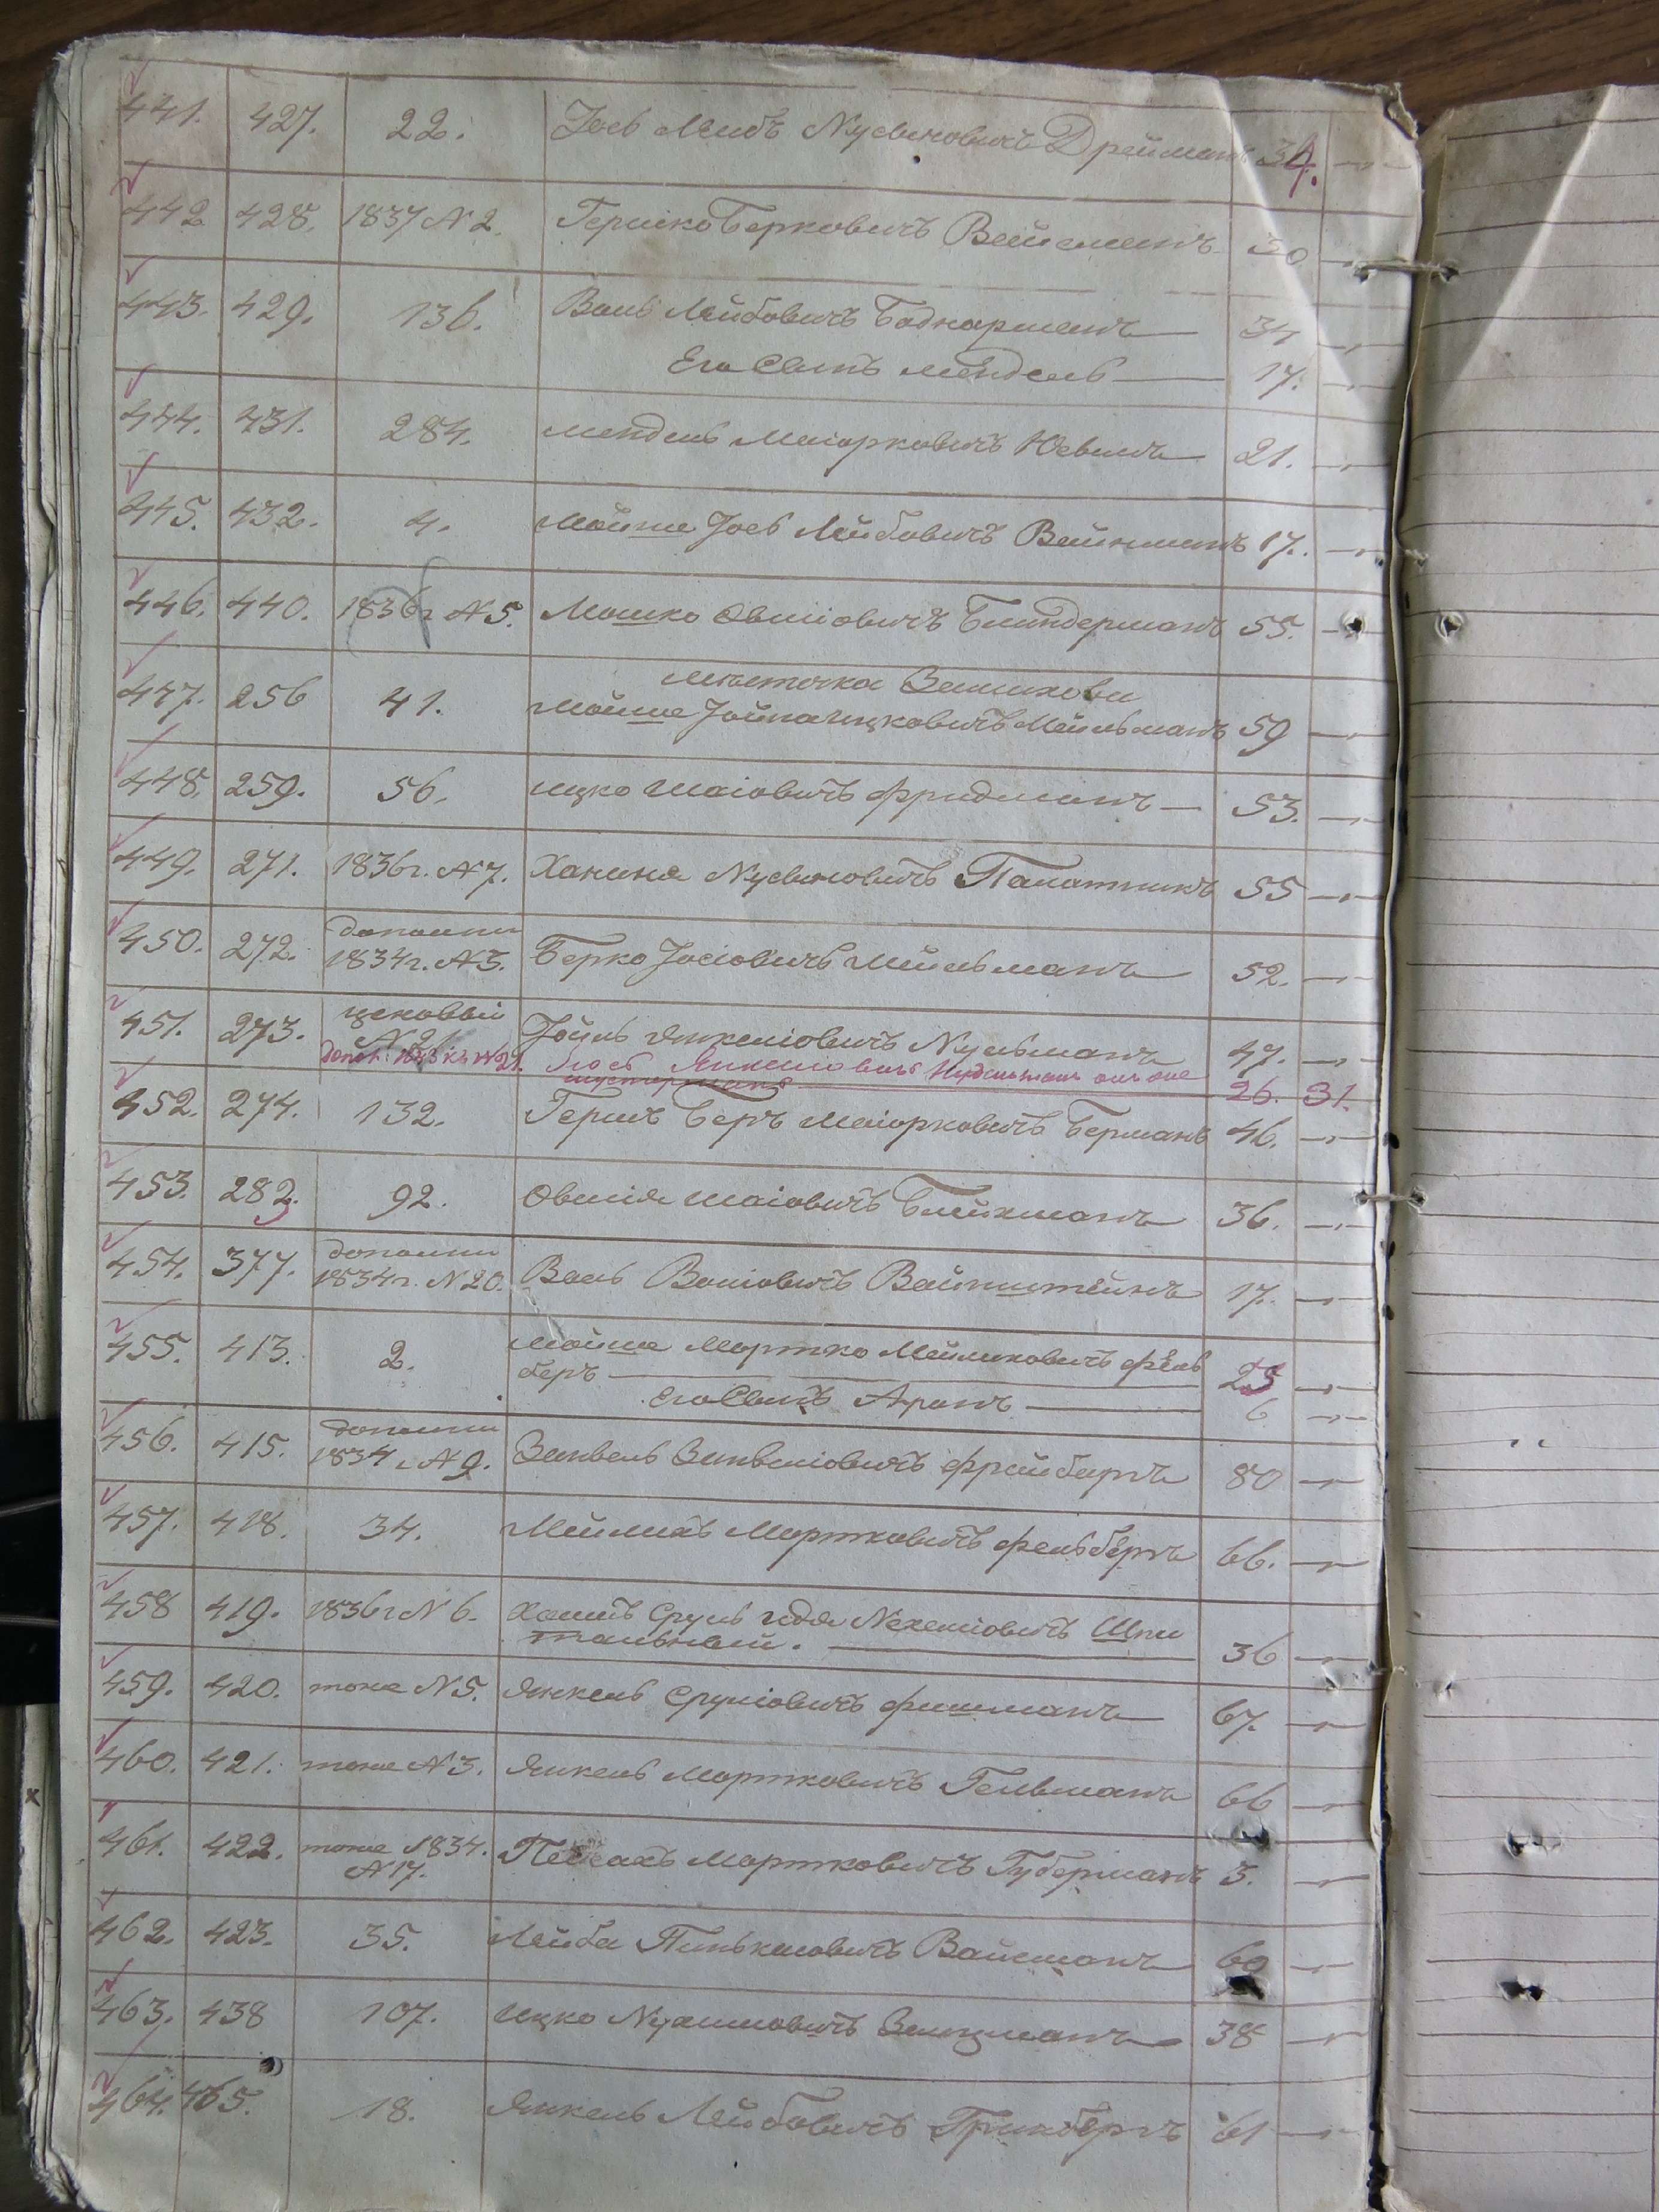 441. 427. 22. Іосъ Лейбъ Нусыновичъ Дрейманъ 34.
442 428. 1837 № 2. Гершко Берковичъ Вейсманъ 30
443. 429. 136.Воль Лейбовичъ Боднарманъ 34
Его Сынъ Мендель 17.
444. 431. 284. Мендель Маіорковичъ 21.
445. 432. 4. Мойше Іосъ Лейбовичъ Вайнманъ 17.
446. 440. 1836г № 5. Мошко Овшіовичъ Блиндерманъ 55.
Мѣстечка
447. 256 41. Мойше Іойна Ицковичъ Мейльманъ 59
448. 259. 56. Ицко Шаіовичъ Фридманъ 53.
449. 271. 1836г. № 7. Ханина Нусыновичъ Палатникъ 55
450. 272. дополни 1834г. № 3. Берко Іосіовичъ Мейльманъ 52.
451. 273. цеховый Іойль Янкеліовичъ Нульманъ 47.
Янкеліовичъ 26. 31.
452. 274. 132. Гершъ Беръ Маіорковичъ Берманъ 46.
453. 283. 92. Овшія Шаіовичъ Блейхманъ 36.
454. 377. дополни 1834г. № 20. Воль Воліовичъ Вайнштейнъ 17.
455. 413. 2. Мойше Мортко Мейлиховичъ Фель
беръ 25
Его Сынъ Аронъ 6
456. 415. дополни 1834 г № 9. Зинвель Зинвеліовичъ Фрайбергъ 80
457. 418. 34. Мейлихъ Мортковичъ Фельбергъ 66.
458 419. 1836г № 6. Хаимъ Сруль Нехеміовичъ Шпи
тальный. 36
459. 420. тоже № 5. Янкель Сруліовичъ Фишманъ 67.
460. 421. тоже № 3. Янкель Мортковичъ Гельманъ 66
461. 422. тоже 1834. Пейсахъ Мортковичъ Губерманъ 3.
№ 17.
462. 423. 35. Лейба Пинькасовичъ Вайсманъ 60
463. 438 107. Ицко Нухимовичъ Зальцманъ 38
464. 465. 18. Янкель Лейбовичъ Гринбергъ 61